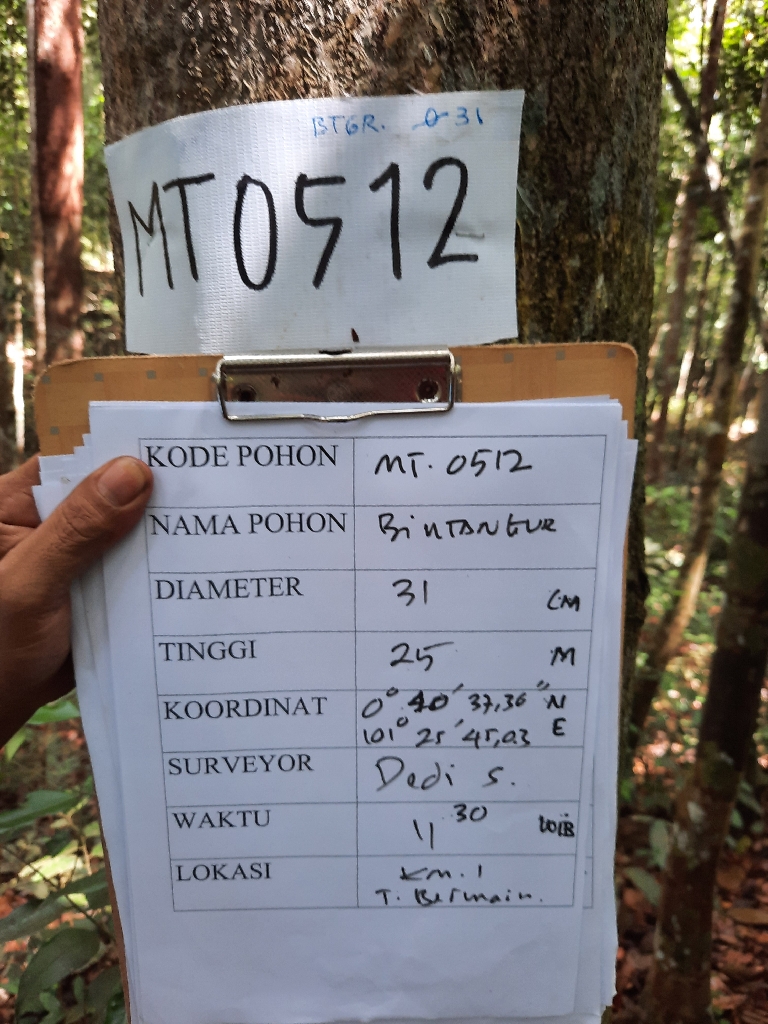 BTGR. 0-31
MT0512
KODE POHON MT. 0512
NAMA POHON BiNTANGUR
DIAMETER 31 CM
TINGGI 25 M
KOORDINAT 0° 40' 37,36" N
101° 25' 45,03 E
SURVEYOR Dedi S.
WAKTU 11 30 WIB
LOKASI Km. 1
T. Bermain.